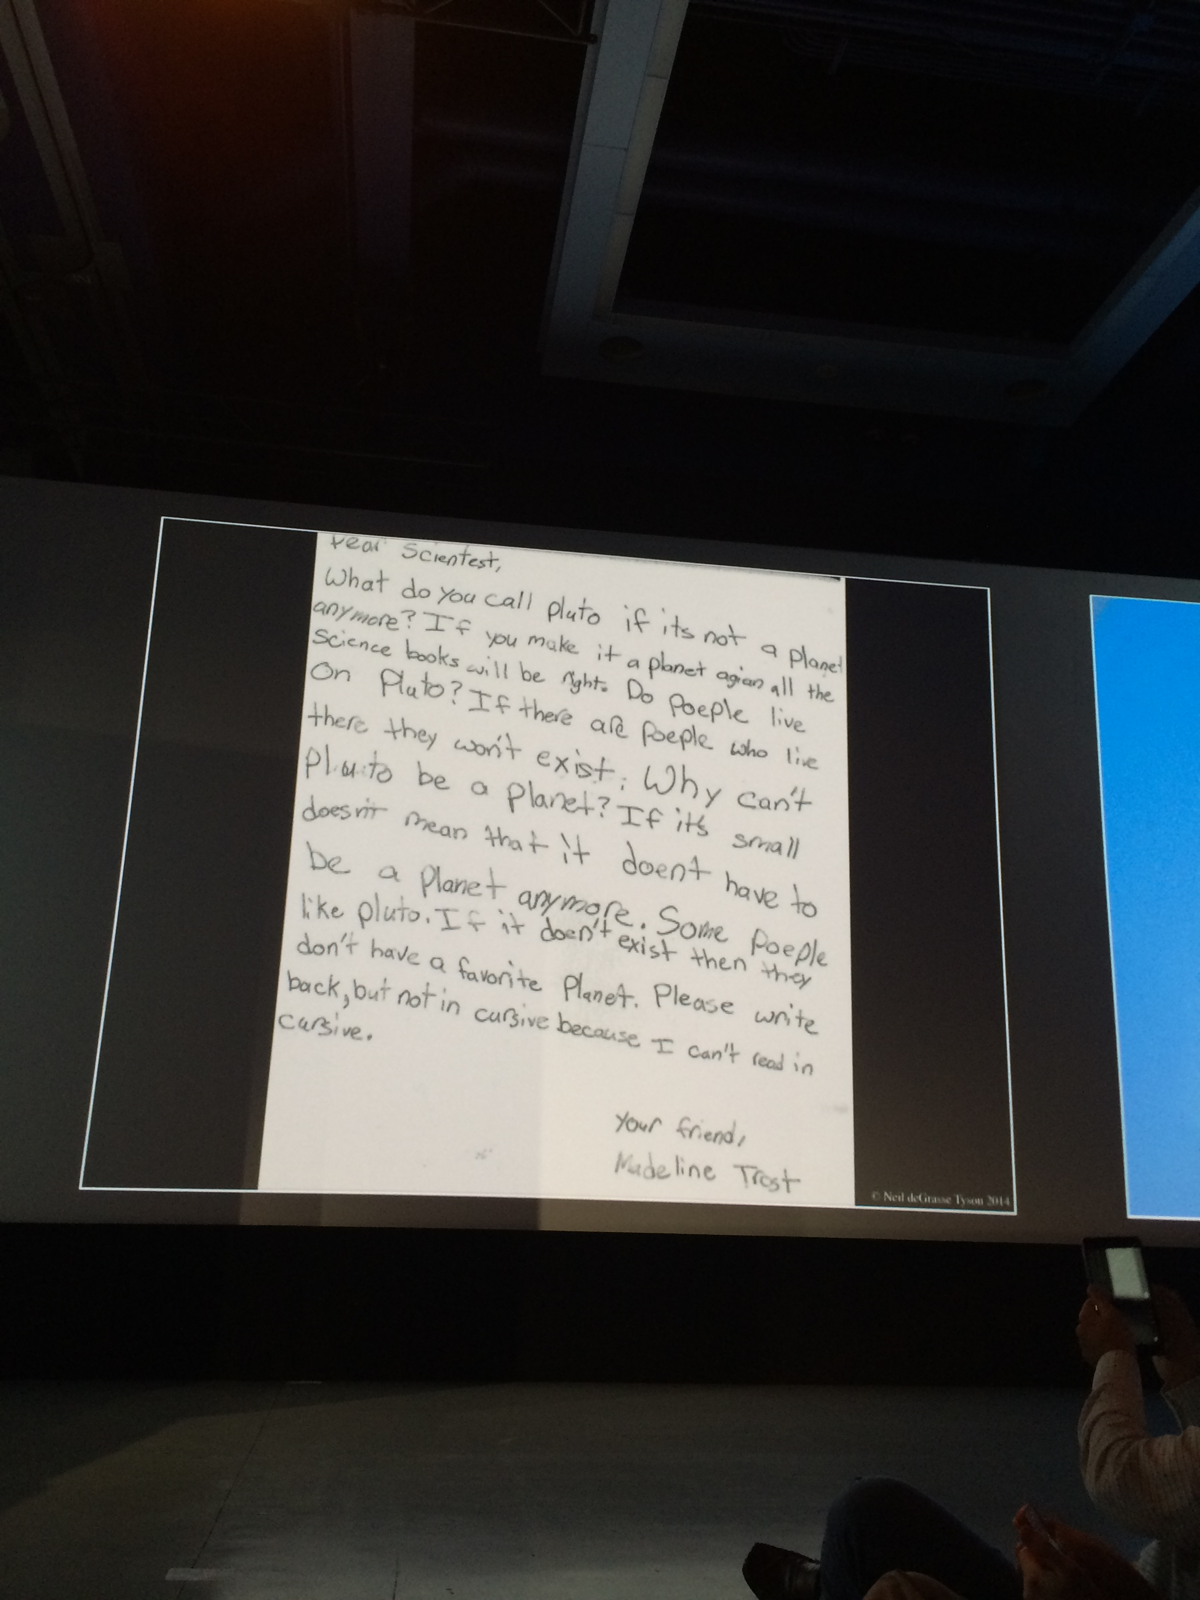 Dear Scientest,
What do you call pluto if its not a planet
anymore? If you make it a planet agian all the
science books will be right. Do poeple live
on Pluto? If there are poeple who live
there they won't exist. Why can't
Pluto be a planet? If it's small
doesn't mean that it doent have to
be a planet anymore. Some poeple
like pluto. If it doen't exist then they
don't have a favorite Planet. Please write
back, but not in cursive because I can't read in
cursive.
Your friend,
Madeline Trost
© Neil deGrasse Tyson 2014